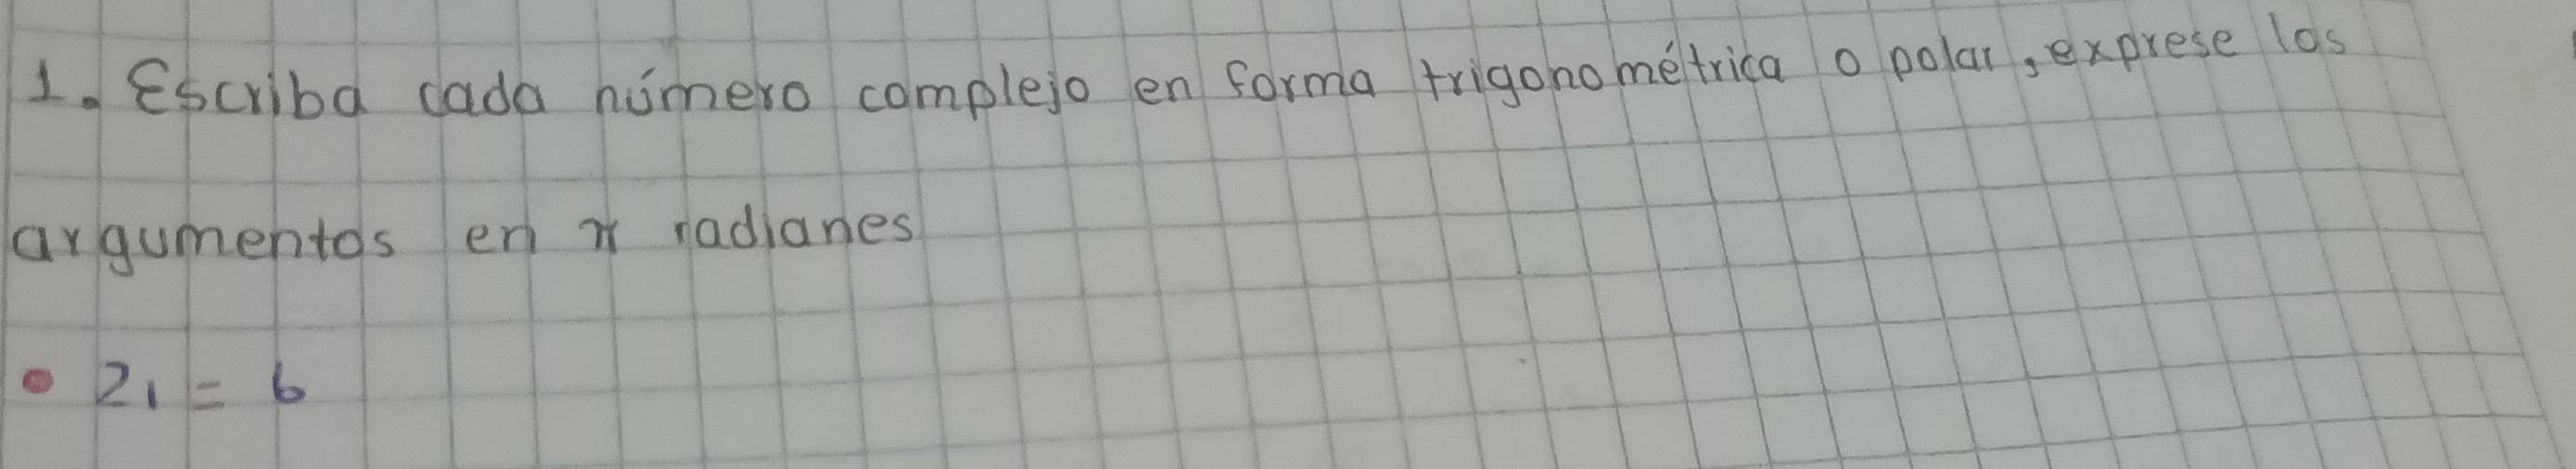 1. Escriba cada número complejo en forma trigonométrica o polar, exprese los
argumentos en π radianes
• Z₁ = 6